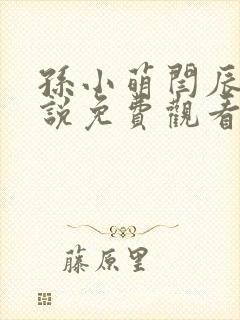 孫小萌閆辰小
說免費觀看
藤原里